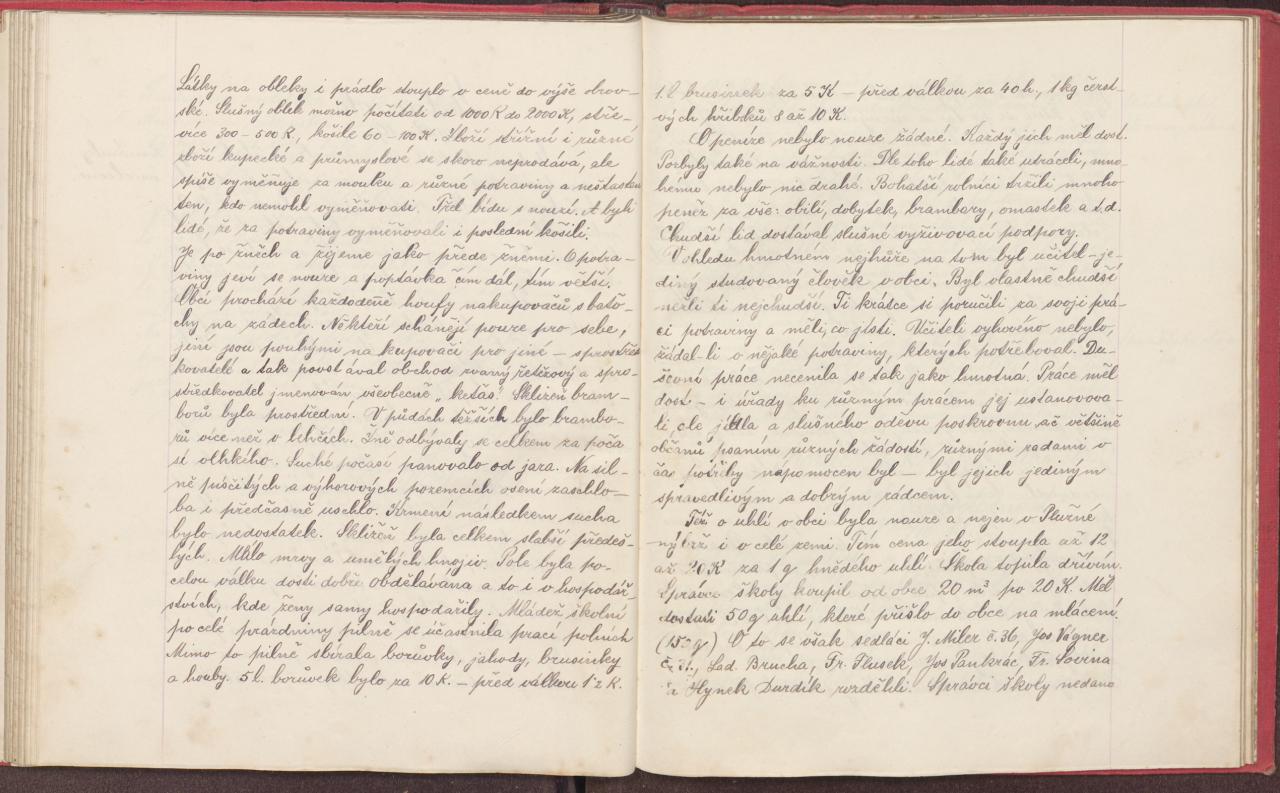 Látky na obleky i prádlo stouplo v ceně do výše obrov-
ské. Slušný oblek možno počítati od 1000 K do 2000 K, stře-
více 300 - 500 K, košile 60 - 100 K. Zboží střižní i různé
zboží kupecké a průmyslové se skoro neprodává, ale
spíše vyměňuje za mouku a různé potraviny a nešťasten
ten, kdo nemohl vyměňovati. Třel bídu s nouzí. A byli
lidé, že za potraviny vyměňovali i poslední košili.
Je po žních a žijeme jako přede žněmi. O potra-
viny jeví se nouze a poptávka čím dál, tím větší.
Obcí prochází každodeně houfy nakupovačů s bato-
chy na zádech. Někteří schánějí pouze pro sebe,
jiní jsou pouhými nakupovači pro jiné - sprostřed
kovatelé a tak povstával obchod zvaný řetězový a spro-
středkovatel jmenován všeobecně „keťas“. Sklizeň bram-
borů byla prostřední. V půdách těžších bylo brambo-
rů více než v lehčích. Žně odbývaly se celkem za poča
sí vlhkého. Suché počasí panovalo od jara. Na sil-
ně písčitých a výhorových pozemcích osení zaschlo-
ba i předčasně uschlo. Krmení následkem sucha
bylo nedostatek. Sklizeň byla celkem slabší předeš-
lých. Málo mrvy a umělých hnojiv. Pole byla po-
celou válku dosti dobře obdělávána a to i v hospodář-
stvích, kde ženy samy hospodařily. Mládež školní
po celé prázdniny pilně se účastnila prací polních
Mimo to pilně sbírala borůvky, jahody, brusinky
a houby. 5 l. borůvek bylo za 10 K. - před válkou 1·2 K.
1 l brusinek za 5 K - před válkou za 40 h., 1 kg čerst-
vých hříbků 8 až 10 K.
O peníze nebylo nouze žádné. Každý jich měl dost.
Pozbyly také na vážnosti. Dle toho lidé také utráceli, mno-
hému nebylo nic drahé. Bohatší rolníci tržili mnoho
peněz za vše: obilí, dobytek, brambory, omastek a t.d.
Chudší lid dostával slušné vyživovací podpory.
V ohledu hmotném nejhůře na tom byl učitel - je-
diný studovaný člověk v obci. Byl vlastně chudší
nežli ti nejchudší. Ti krátce si poručili za svoji prá-
ci potraviny a měli, co jísti. Učiteli vyhověno nebylo,
žádal-li o nějaké potraviny, kterých potřeboval. Du-
ševní práce necenila se tak jako hmotná. Práce měl
dost - i úřady ku různým pracem jej ustanovova-
li, ale jídla a slušného oděvu poskrovnu, ač většině
občanů psaním různých žádostí, různými radami v
čas potřeby nápomocen byl - byl jejich jediným
spravedlivým a dobrým rádcem.
Též o uhlí v obci byla nouze a nejen v Plužné
nýbrž i v celé zemi. Tím cena jeho stoupla až 12
až 20 K za 1 q hnědého uhlí. Škola topila dřívím.
Správce školy koupil od obce 20 m³ po 20 K. Měl
dostati 50 q uhlí, které přišlo do obce na mlácení.
(150 q) O to se však sedláci J. Miler č. 36, Jos Vágner
č. 31., Lad. Brucha, Fr. Flusek, Jos Pankrác, Fr. Sovina
a Hynek Durdík rozdělili. Správci školy nedáno